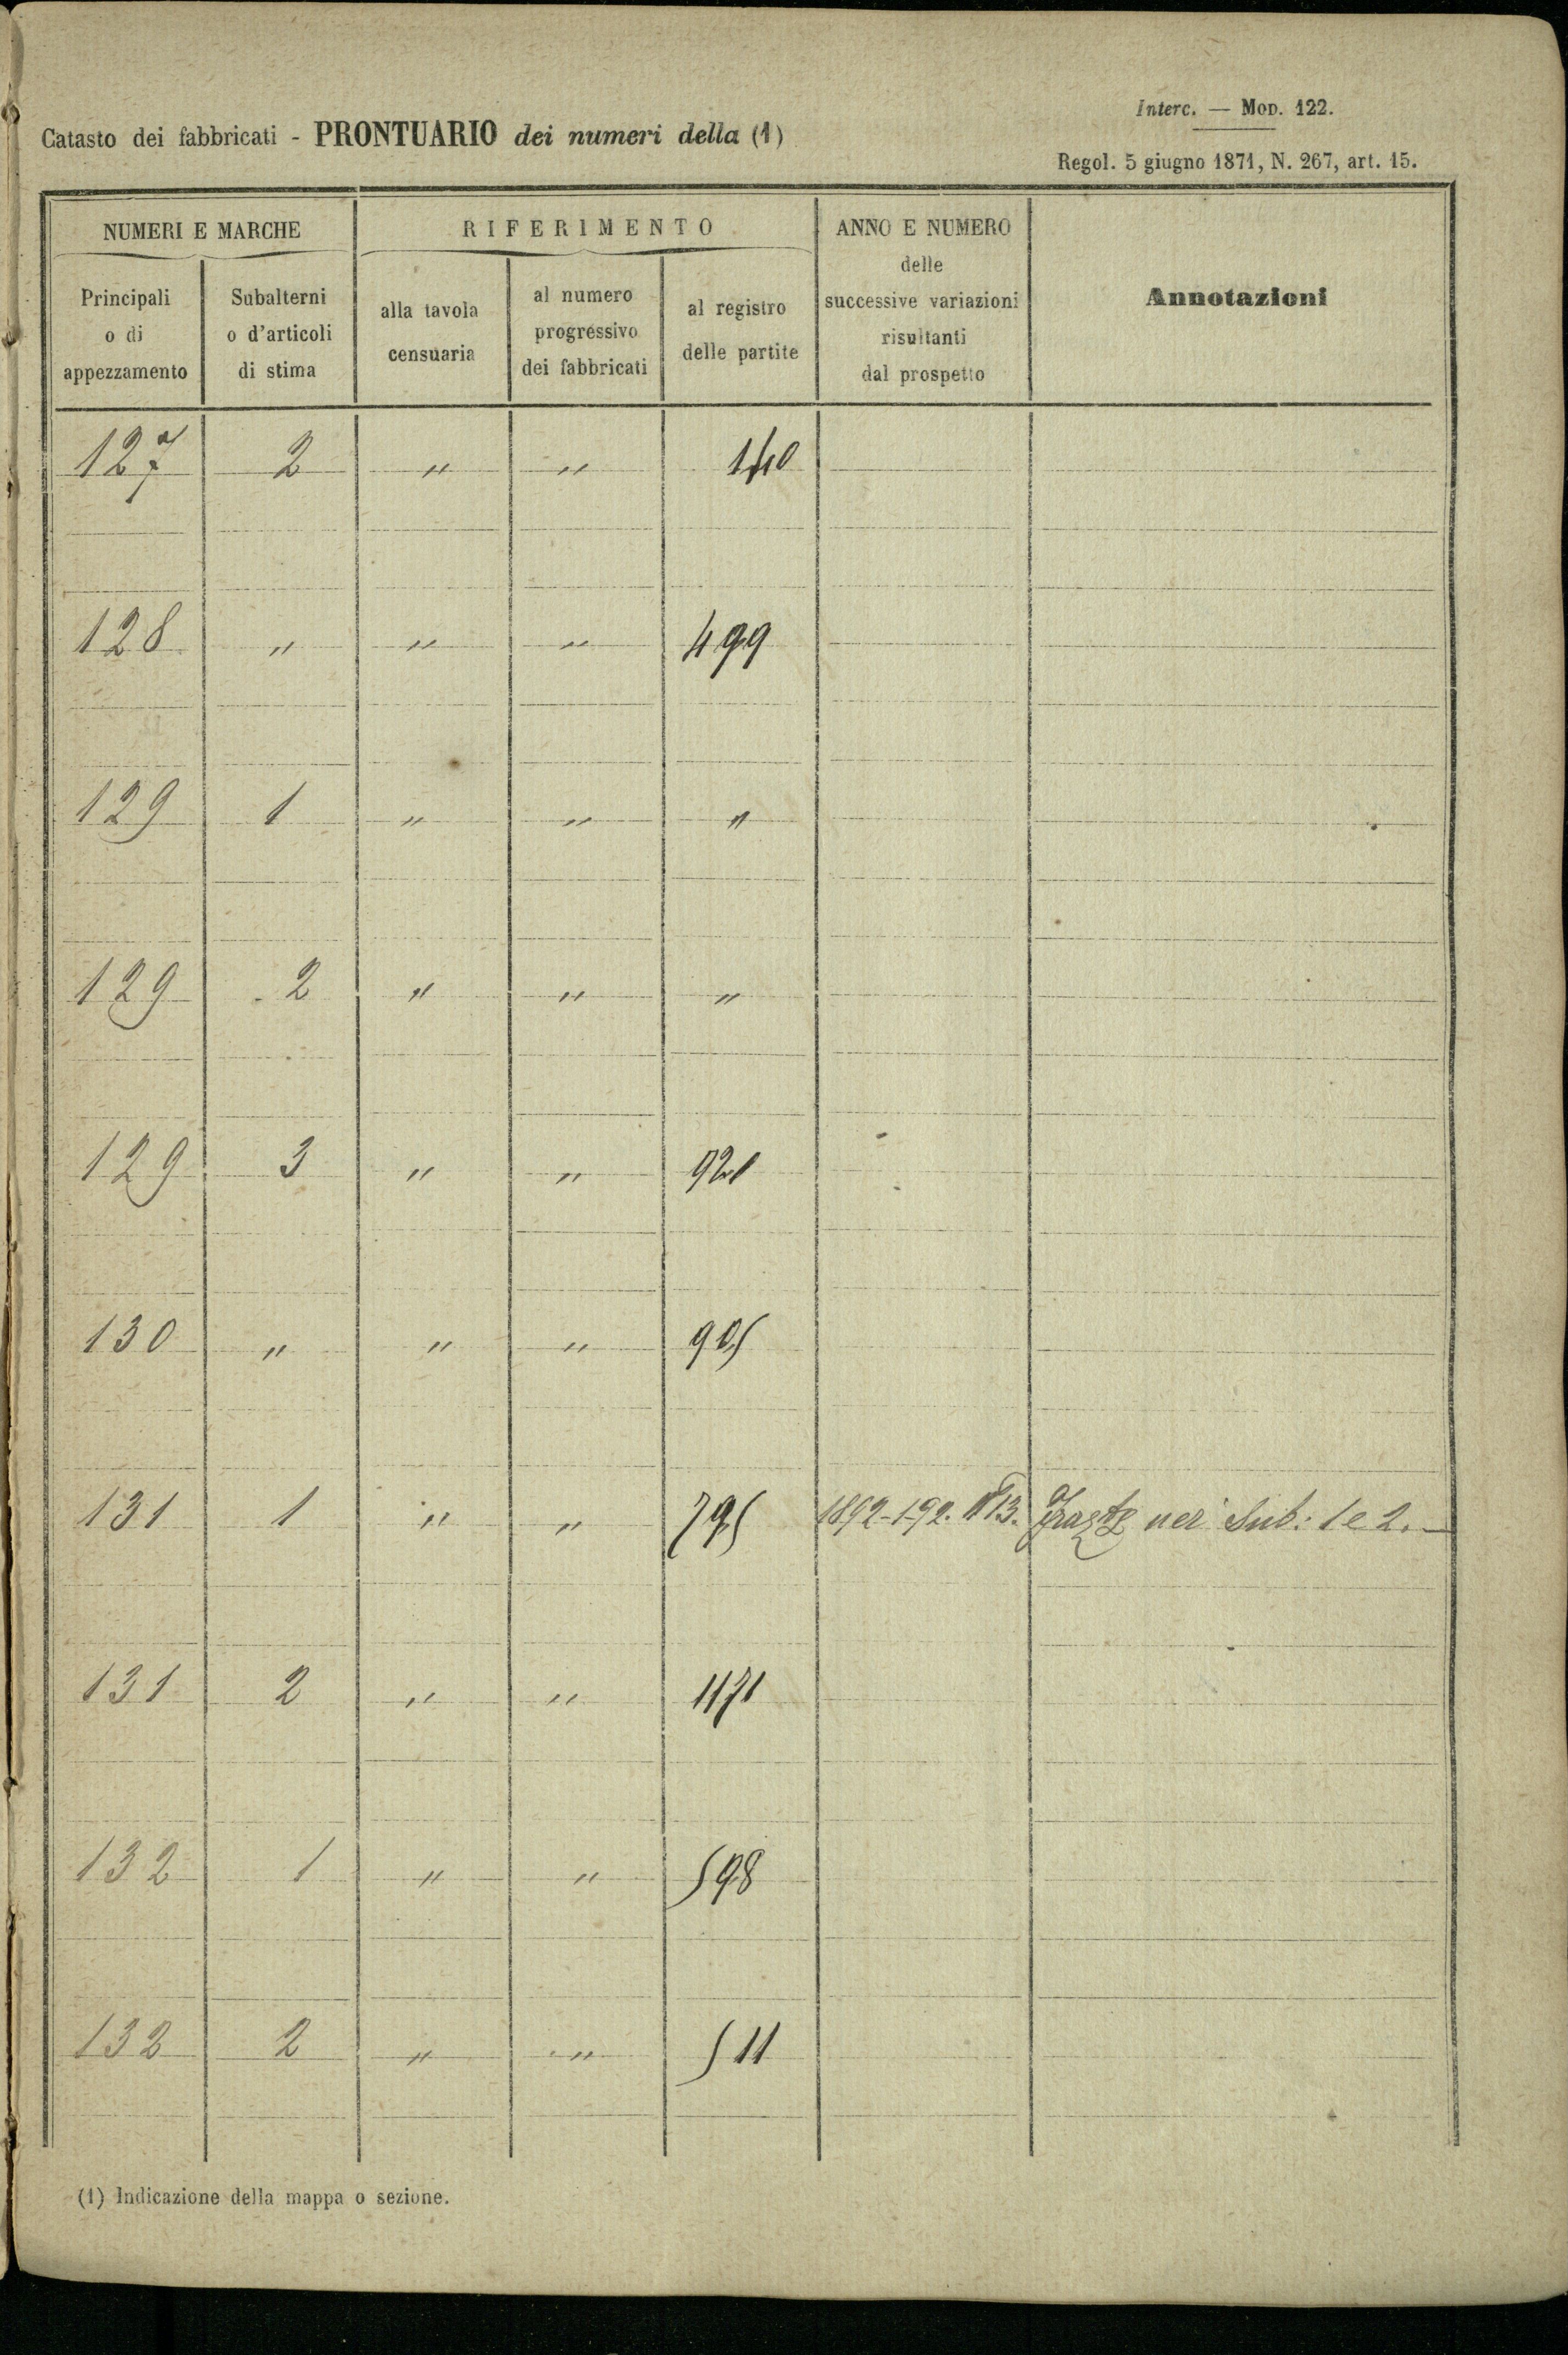 Interc. — Mod. 122.
Catasto dei fabbricati - PRONTUARIO dei numeri della (1)
Regol. 5 giugno 1871, N. 267, art. 15.
NUMERI E MARCHE RIFERIMENTO ANNO E NUMERO delle successive variazioni risultanti dal prospetto Annotazioni
Principali o di appezzamento Subalterni o d'articoli di stima alla tavola censuaria al numero progressivo dei fabbricati al registro delle partite
127 2 " " 140
128 " " " 499
129 1 " " "
129 2 " " "
129 3 " " 921
130 " " " 905
131 1 " " 795 1892-192. 13. nei Sub: 1 e 2. —
131 2 " " 1171
132 1 " " 598
132 2 " " 511
(1) Indicazione della mappa o sezione.